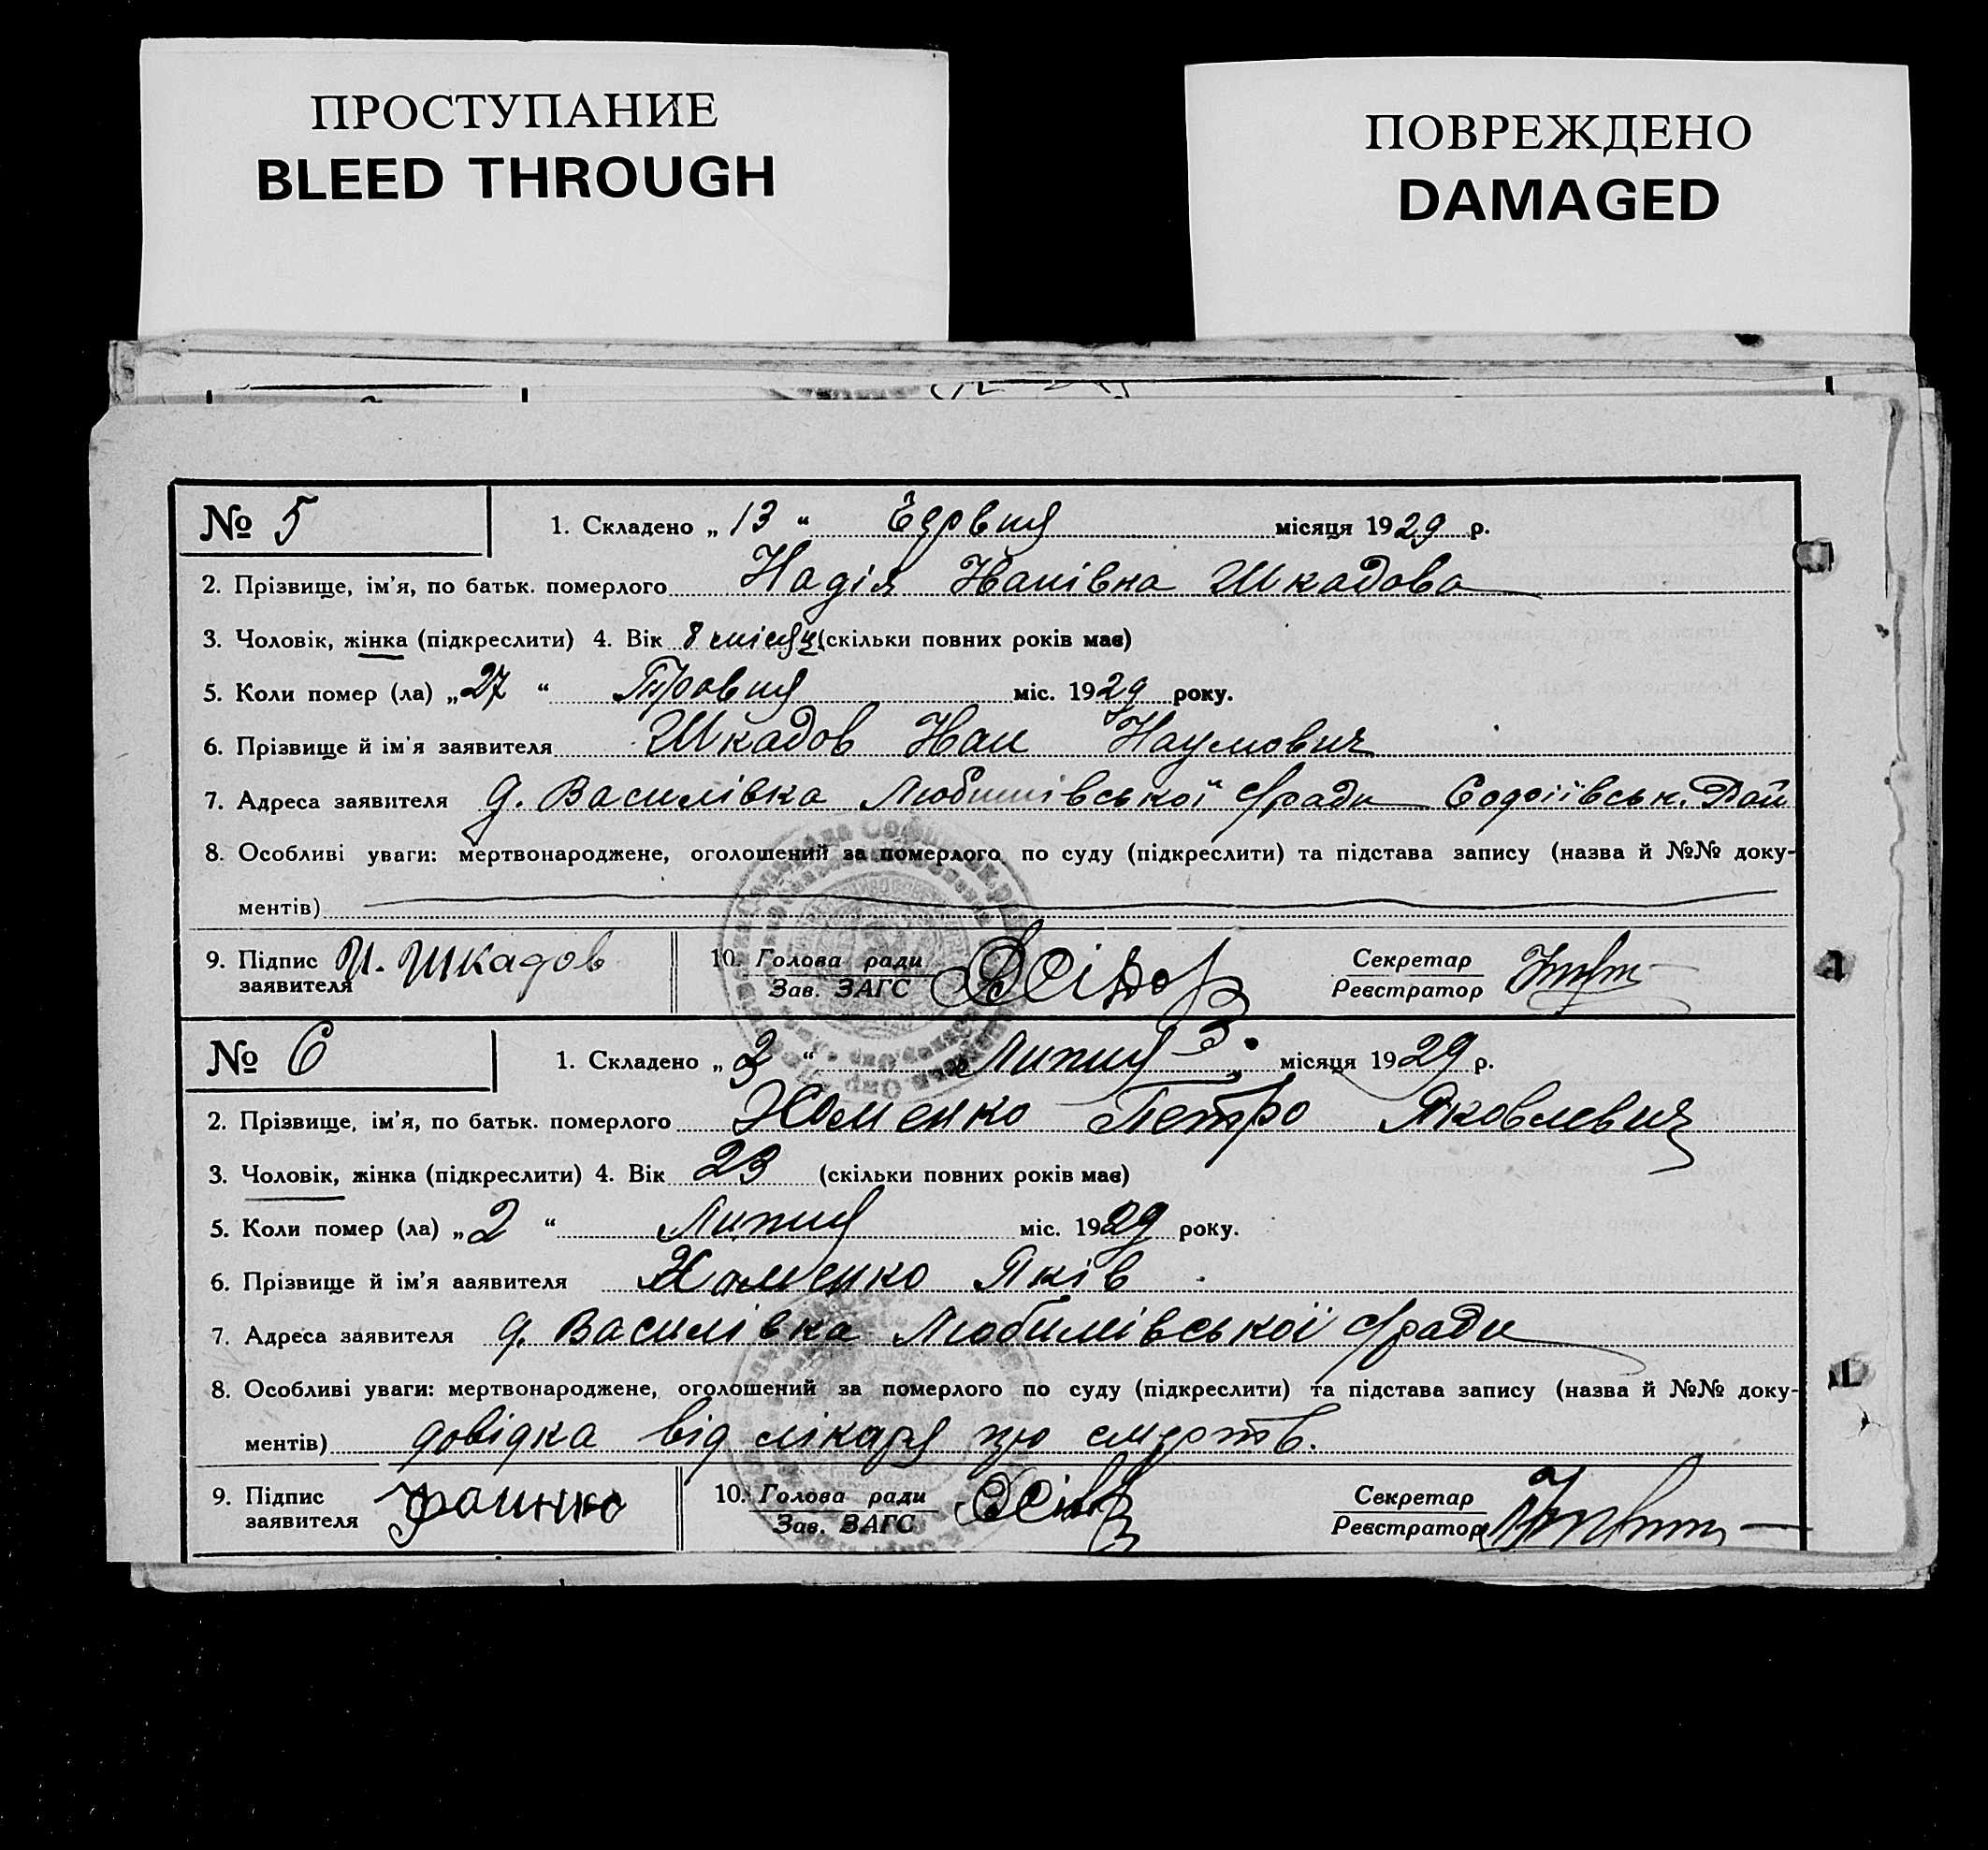 ПРОСТУПАНИЕ
BLEED THROUGH
ПОВРЕЖДЕНО
DAMAGED
№ 5
1. Складено „ 13 “ місяця 1929 р.
2. Прізвище, ім'я, по батьк. померлого Надія Шкадова
3. Чоловік, жінка (підкреслити) 4. Вік 8 місяц (скільки повних років має)
5. Коли помер (ла) „ 27 “ міс. 1929 року.
6. Прізвище й ім'я заявителя Шкадов Наумович
7. Адреса заявителя д. Василівка с/ради Софіївськ. Рай
8. Особливі уваги: мертвонароджене, оголошений за померлого по суду (підкреслити) та підстава запису (назва й №№ доку-
ментів)
9. Підпис заявителя И. Шкадов
10. Голова ради
Зав. ЗАГС
Секретар
Реєстратор
№ 6
1. Складено „ “ Липня місяця 1929 р.
2. Прізвище, ім'я, по батьк. померлого Петро Яковлевич
3. Чоловік, жінка (підкреслити) 4. Вік 23 (скільки повних років має)
5. Коли помер (ла) „ 2 “ Липня міс. 1929 року.
6. Прізвище й ім'я заявителя Яків
7. Адреса заявителя д. Василівка Любимівської с/ради
8. Особливі уваги: мертвонароджене, оголошений за померлого по суду (підкреслити) та підстава запису (назва й №№ доку-
ментів) довідка від лікаря про смерть.
9. Підпис заявителя
10. Голова ради
Зав. ЗАГС
Секретар
Реєстратор